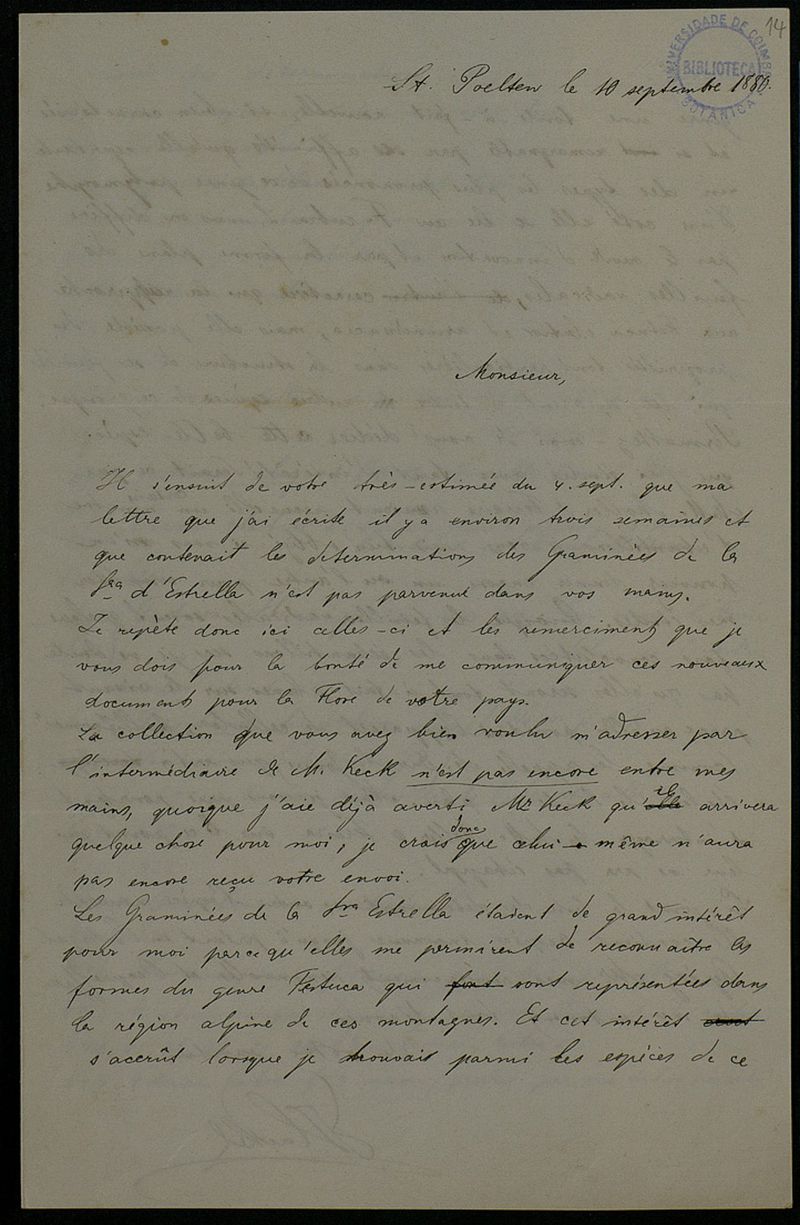 14
UNIVERSIDADE DE COIMBRA
BIBLIOTECA
BOTANICA
St. Poelten le 10 septembre 1880.
Monsieur,
Il s'ensuit de votre très-estimée du 4. sept. que ma
lettre que j'ai écrite il y a environ trois semaines et
que contenait les determinations des Graminées de la
Sra d'Estrella n'est pas parvenue dans vos mains.
Je repète donc ici celles-ci et les remerciments que je
vous dois pour la bonté de me communiquer ces nouveaux
documents pour la Flore de votre pays.
La collection que vous avez bien voulu m'adresser par
l'intermédiaire de M. Keck n'est pas encore entre mes
mains, quoique j'aie déjà averti Mr Keck qu'il arrivera
quelque chose pour moi; je crois donc que celui-même n'aura
pas encore reçu votre envoi.
Les Graminées de la Sra Estrella étaient de grand intérêt
pour moi parcequ'elles me permirent de reconnaitre les
formes du genre Festuca qui font sont représentées dans
la région alpine de ces montagnes. Et cet intérêt
s'acerût lorsque je trouvais parmi les espéces de ce